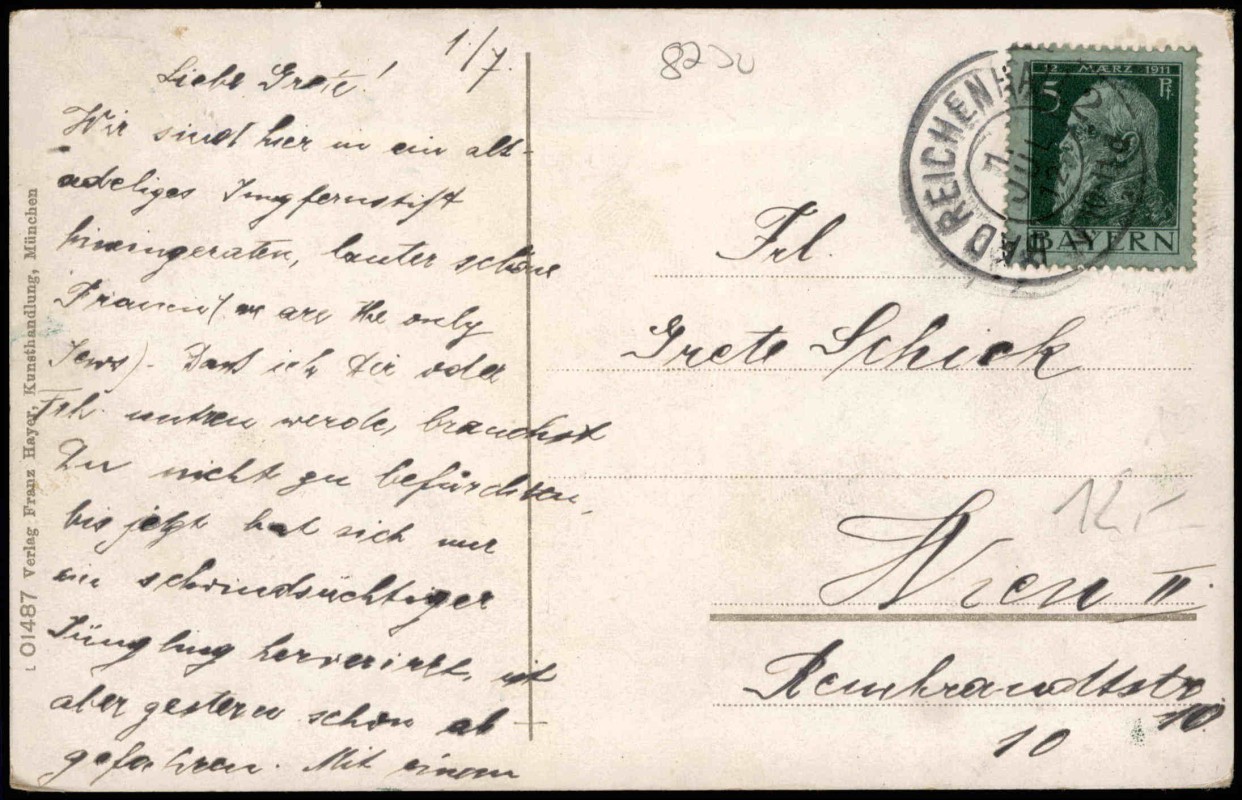 1./7.
Liebe Grete!
Wir sind hier in ein alt-
adeliges Jungfernstift
hineingeraten, lauter schöne
Frauen (we are the only
Jews). Dass ich Dir oder
untreu werde, brauchst
Du nicht zu befürchten,
bis jetzt hat sich nur
ein schwindsüchtiger
Jüngling herverirrt, ist
aber gestern schon ab-
gefahren. Mit einem
L 01487 Verlag Franz Hayer, Kunsthandlung, München
12. MÆRZ 1911
5 Pf
BAYERN
BAD REICHENHALL
Frl.
Grete Schick
Wien II
Rembrandtstr
10
10
12,-